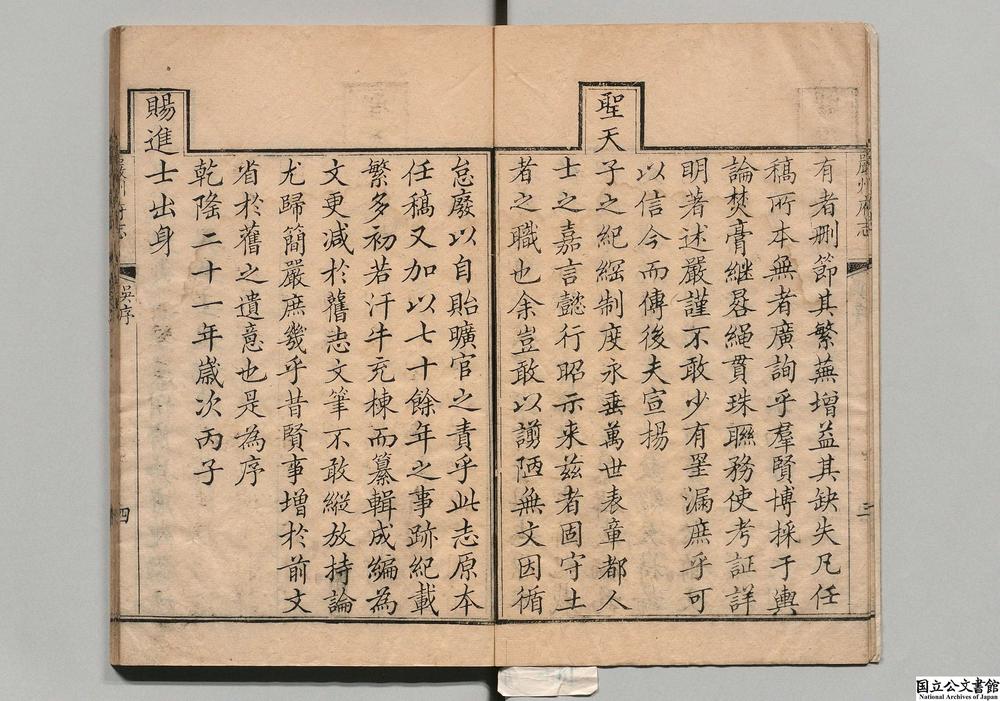 有者刪節其繁蕪增益其缺失凡任
稿所本無者廣詢乎羣賢博採于輿
論焚膏継晷繩貫珠聮務使考証詳
明著述嚴謹不敢少有罣漏庶乎可
以信今而傳後夫宣揚
聖天子之紀綱制度永垂萬世表章都人
士之嘉言懿行昭示来兹者固守土
者之職也余豈敢以謭陋無文因循
怠廢以自貽曠官之責乎此志原本
任稿又加以七十餘年之事跡紀載
繁多初若汗牛充棟而纂輯成編為
文更减於舊志文筆不敢縱放持論
尤歸簡嚴庶幾乎昔賢事增於前文
省於舊之遺意也是為序
乾隆二十一年歲次丙子
賜進士出身
嚴州府志
三
吳序
四
国立公文書館
National Archives of Japan